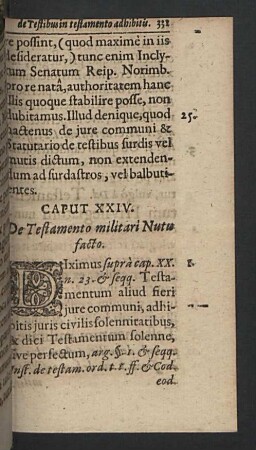 de Testibus in testamento adhibitis. 331
re possint, (quod maximè in iis
desideratur,) tunc enim Incly-
tum Senatum Reip. Norimb.
pro re natâ, authoritatem hanc
illis quoque stabilire posse, non
dubitamus. Illud denique, quod 25.
hactenus de jure communi &
statutario de testibus surdis vel
mutis dictum, non extenden-
dum ad surdastros, vel balbuti-
entes.
CAPUT XXIV.
De Testamento militari Nutu
facto.
DIximus suprà cap. XX. 1.
n. 23. & seqq. Testa-
mentum aliud fieri
jure communi, adhi-
bitis juris civilis solennitatibus,
& dici Testamentum solenne,
sive perfectum, arg. §. 1. & seqq.
Inst. de testam. ord. t. t. ff. & Cod.
eod.